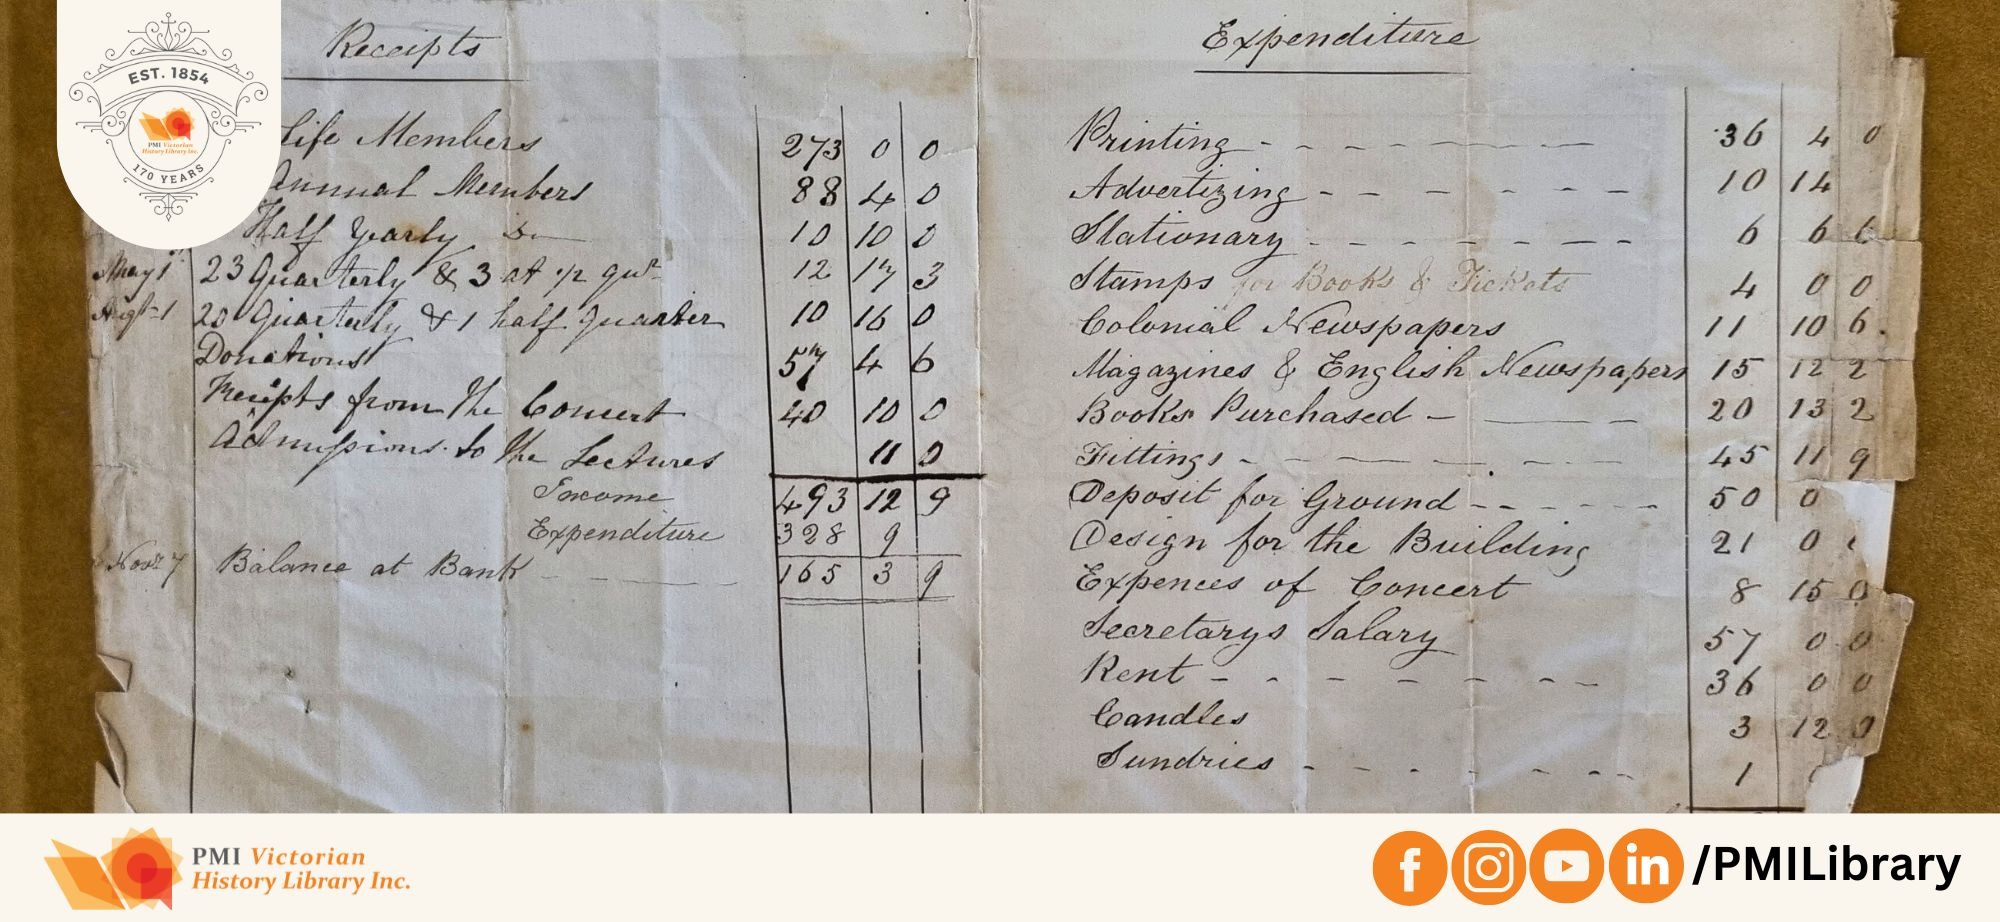 EST. 1854
PMI Victorian
History Library Inc.
170 YEARS
Receipts
Life Members 273 0 0
Annual Members 88 4 0
Half Yearly Do 10 10 0
May 1st 23 Quarterly & 3 at 1/2 qutr 12 17 3
Augt 1 20 Quarterly & 1 half Quarter 10 16 0
Donations 57 4 6
Receipts from the Concert 40 10 0
Admissions to the Lectures 11 0
Income 493 12 9
Expenditure 328 9
Novr 7 Balance at Bank 165 3 9
Expenditure
Printing 36 4 0
Advertizing 10 14
Stationary 6 6 6
Stamps for Books & Tickets 4 0 0
Colonial Newspapers 11 10 6.
Magazines & English Newspapers 15 12 2
Books Purchased 20 13 2
Fittings 45 11 9
Deposit for Ground 50 0
Design for the Building 21 0
Expences of Concert 8 15 0
Secretarys Salary 57 0 0
Rent 36 0 0
Candles 3 12 0
Sundries 1
PMI Victorian
History Library Inc.
/PMILibrary